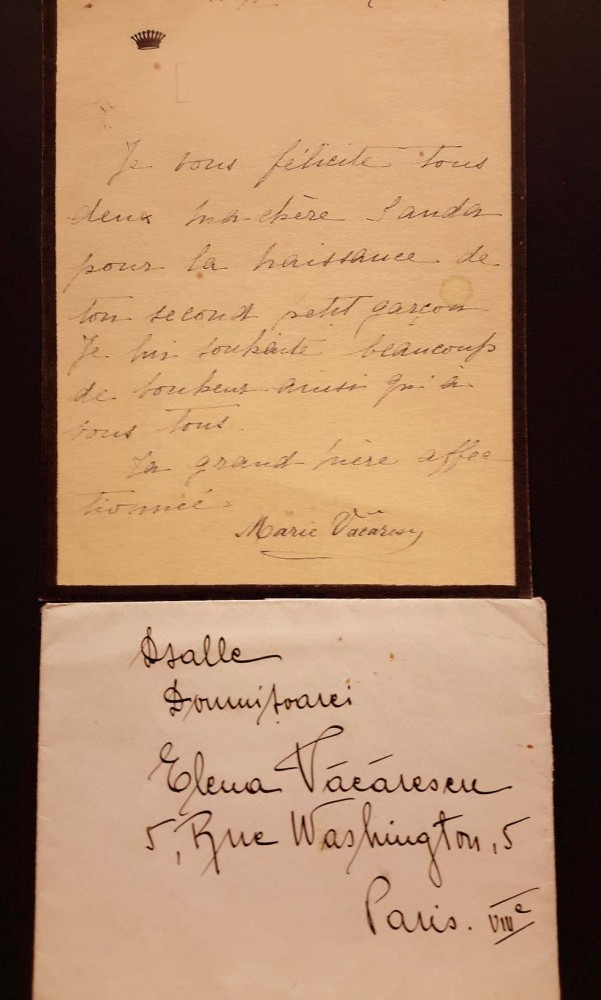 Je vous félicite tous
deux ma chère Sanda
pour la naissance de
ton second petit garçon
Je lui souhaite beaucoup
de bonheur ainsi qu'à
vous tous.
Ta grand mère affec
tionnée
Marie Văcărescu
Dsalle
Domnișoarei
Elena Văcărescu
5, Rue Washington, 5
Paris. VIIIe